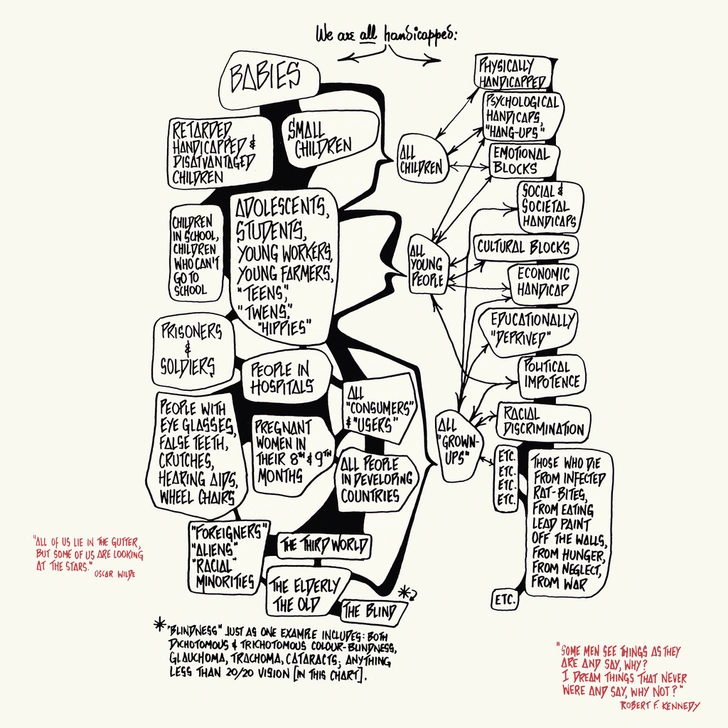 We are all handicapped:
BABIES
RETARDED
HANDICAPPED &
DISATVANTAGED
CHILDREN
SMALL
CHILDREN
CHILDREN
IN SCHOOL,
CHILDREN
WHO CAN'T
GO TO
SCHOOL
ADOLESCENTS,
STUDENTS,
YOUNG WORKERS,
YOUNG FARMERS,
"TEENS,"
"TWENS,"
"HIPPIES"
PRISONERS
&
SOLDIERS
PEOPLE IN
HOSPITALS
PEOPLE WITH
EYE GLASSES,
FALSE TEETH,
CRUTCHES,
HEARING AIDS,
WHEEL CHAIRS
PREGNANT
WOMEN IN
THEIR 8TH & 9TH
MONTHS
ALL
"CONSUMERS"
& "USERS"
ALL PEOPLE
IN DEVELOPING
COUNTRIES
"FOREIGNERS"
"ALIENS"
"RACIAL"
MINORITIES
THE THIRD WORLD
THE ELDERLY
THE OLD
THE BLIND
*
ALL
CHILDREN
ALL
YOUNG
PEOPLE
ALL
"GROWN-
UPS"
PHYSICALLY
HANDICAPPED
PSYCHOLOGICAL
HANDICAPS,
"HANG-UPS"
EMOTIONAL
BLOCKS
SOCIAL &
SOCIETAL
HANDICAPS
CULTURAL BLOCKS
ECONOMIC
HANDICAP
EDUCATIONALLY
"DEPRIVED"
POLITICAL
IMPOTENCE
RACIAL
DISCRIMINATION
ETC.
ETC.
ETC.
ETC.
THOSE WHO DIE
FROM INFECTED
RAT-BITES,
FROM EATING
LEAD PAINT
OFF THE WALLS,
FROM HUNGER,
FROM NEGLECT,
FROM WAR
ETC.
"ALL OF US LIE IN THE GUTTER,
BUT SOME OF US ARE LOOKING
AT THE STARS."
OSCAR WILDE
* "BLINDNESS" JUST AS ONE EXAMPLE INCLUDES: BOTH
DICHOTOMOUS & TRICHOTOMOUS COLOUR-BLINDNESS,
GLAUCHOMA, TRACHOMA, CATARACTS; ANYTHING
LESS THAN 20/20 VISION [IN THIS CHART].
"SOME MEN SEE THINGS AS THEY
ARE AND SAY, WHY?
I DREAM THINGS THAT NEVER
WERE AND SAY, WHY NOT?"
ROBERT F. KENNEDY